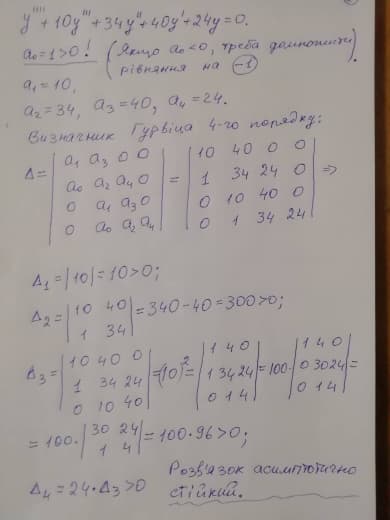 y'''' + 10y''' + 34y'' + 40y' + 24y = 0.
a₀ = 1 > 0 ! (Якщо a₀ < 0, треба домножити
рівняння на (−1)).
a₁ = 10,
a₂ = 34, a₃ = 40, a₄ = 24.
Визначник Гурвіца 4-го порядку:
Δ = | a₁ a₃ 0 0 | = | 10 40 0 0 | =>
| a₀ a₂ a₄ 0 | | 1 34 24 0 |
| 0 a₁ a₃ 0 | | 0 10 40 0 |
| 0 a₀ a₂ a₄ | | 0 1 34 24 |
Δ₁ = |10| = 10 > 0;
Δ₂ = | 10 40 | = 340 − 40 = 300 > 0;
| 1 34 |
Δ₃ = | 10 40 0 | = (10)² = | 1 4 0 | = 100· | 1 4 0 | =
| 1 34 24 | | 1 34 24 | | 0 30 24 |
| 0 10 40 | | 0 1 4 | | 0 1 4 |
= 100· | 30 24 | = 100·96 > 0;
| 1 4 |
Δ₄ = 24·Δ₃ > 0 Розв'язок асимптотично
стійкий.